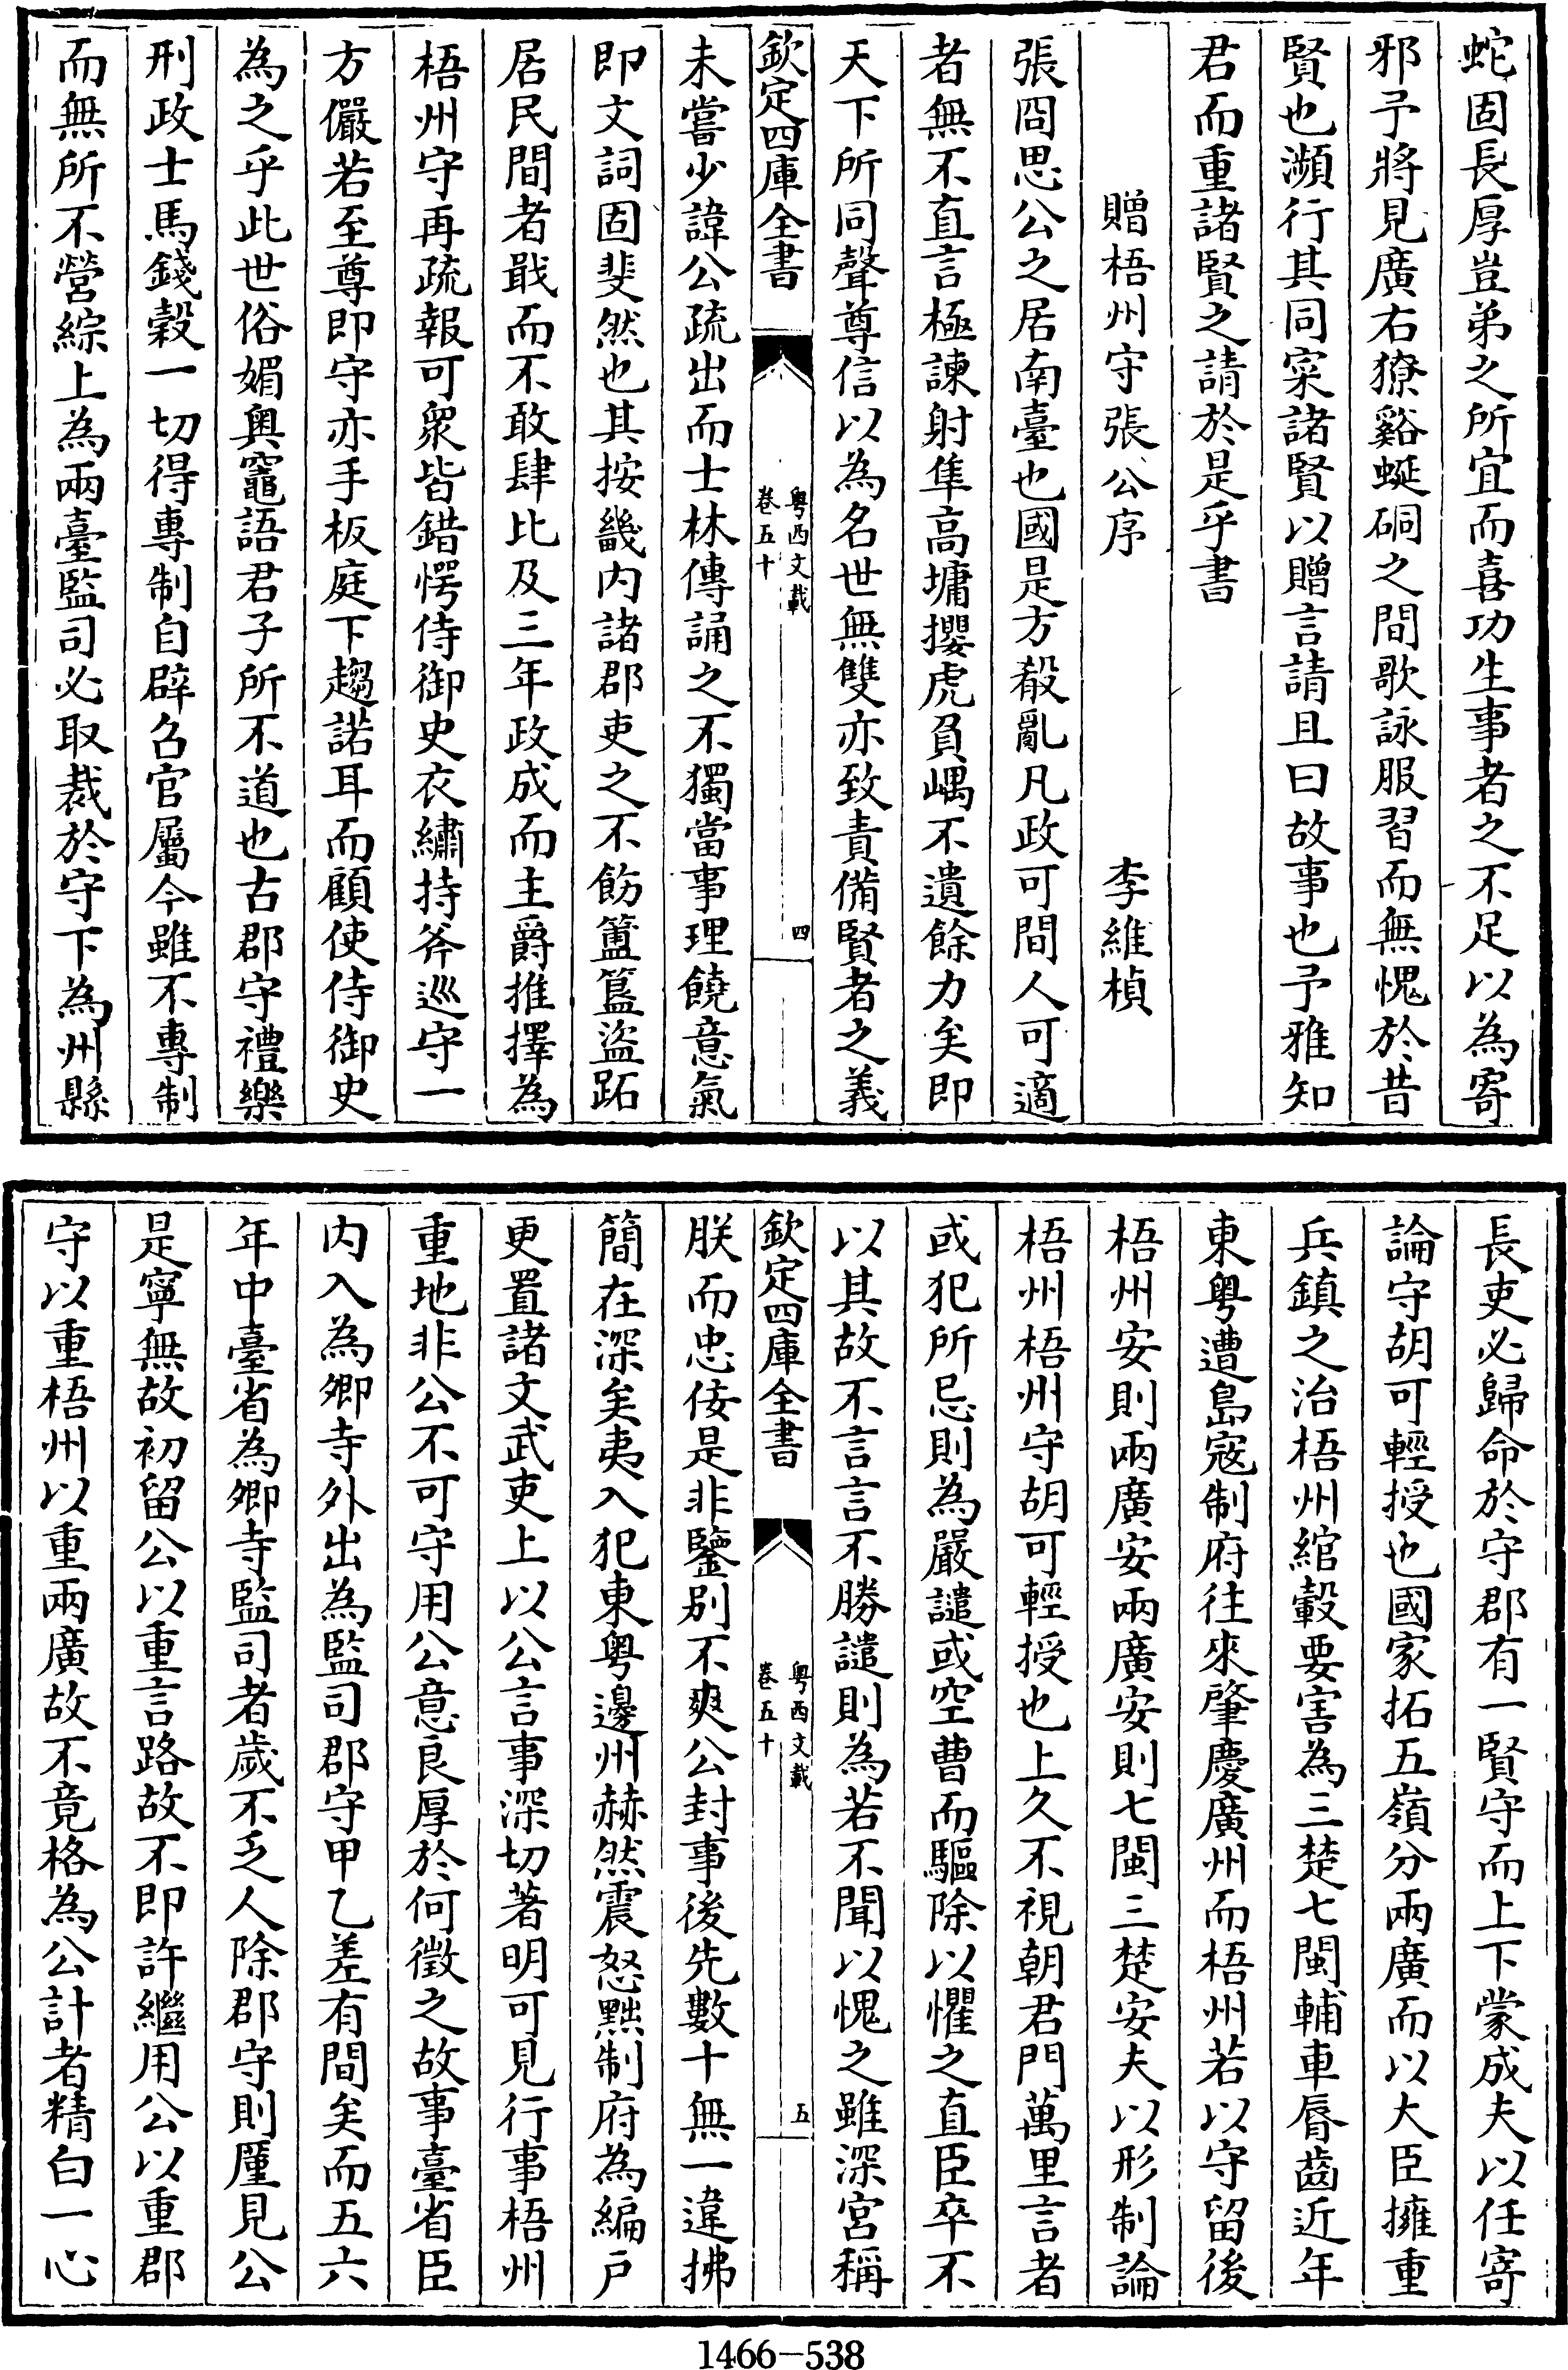 蛇固長厚豈弟之所宜而喜功生事者之不足以為寄
邪予將見廣右獠谿蜒硐之間歌詠服習而無愧於昔
賢也瀕行其同寀諸賢以贈言請且曰故事也予雅知
君而重諸賢之請於是乎書
贈梧州守張公序 李維楨
張冏思公之居南臺也國是方殽亂凡政可間人可適
者無不直言極諫射隼高墉攖虎負嵎不遺餘力矣即
天下所同聲尊信以為名世無雙亦致責備賢者之義
欽定四庫全書
粤西文載
卷五十
四
未嘗少諱公疏出而士林傳誦之不獨當事理饒意氣
即文詞固斐然也其按畿内諸郡吏之不飭簠簋盜跖
居民間者戢而不敢肆比及三年政成而主爵推擇為
梧州守再疏報可衆皆錯愕侍御史衣繡持斧巡守一
方儼若至尊即守亦手板庭下趨諾耳而顧使侍御史
為之乎此世俗媚奥竈語君子所不道也古郡守禮樂
刑政士馬錢穀一切得專制自辟名官屬今雖不專制
而無所不營綜上為兩臺監司必取裁於守下為州縣
長吏必歸命於守郡有一賢守而上下蒙成夫以任寄
論守胡可輕授也國家拓五嶺分兩廣而以大臣擁重
兵鎮之治梧州綰轂要害為三楚七閩輔車脣齒近年
東粤遭島寇制府往來肇慶廣州而梧州若以守留後
梧州安則兩廣安兩廣安則七閩三楚安夫以形制論
梧州梧州守胡可輕授也上久不視朝君門萬里言者
或犯所忌則為嚴譴或空曹而驅除以懼之直臣卒不
以其故不言言不勝譴則為若不聞以愧之雖深宮稱
欽定四庫全書
粤西文載
卷五十
五
朕而忠佞是非鑒别不爽公封事後先數十無一違拂
簡在深矣夷入犯東粤邊州赫然震怒黜制府為編戶
更置諸文武吏上以公言事深切著明可見行事梧州
重地非公不可守用公意良厚於何徵之故事臺省臣
内入為卿寺外出為監司郡守甲乙差有間矣而五六
年中臺省為卿寺監司者歲不乏人除郡守則厪見公
是寧無故初留公以重言路故不即許繼用公以重郡
守以重梧州以重兩廣故不竟格為公計者精白一心
1466-538